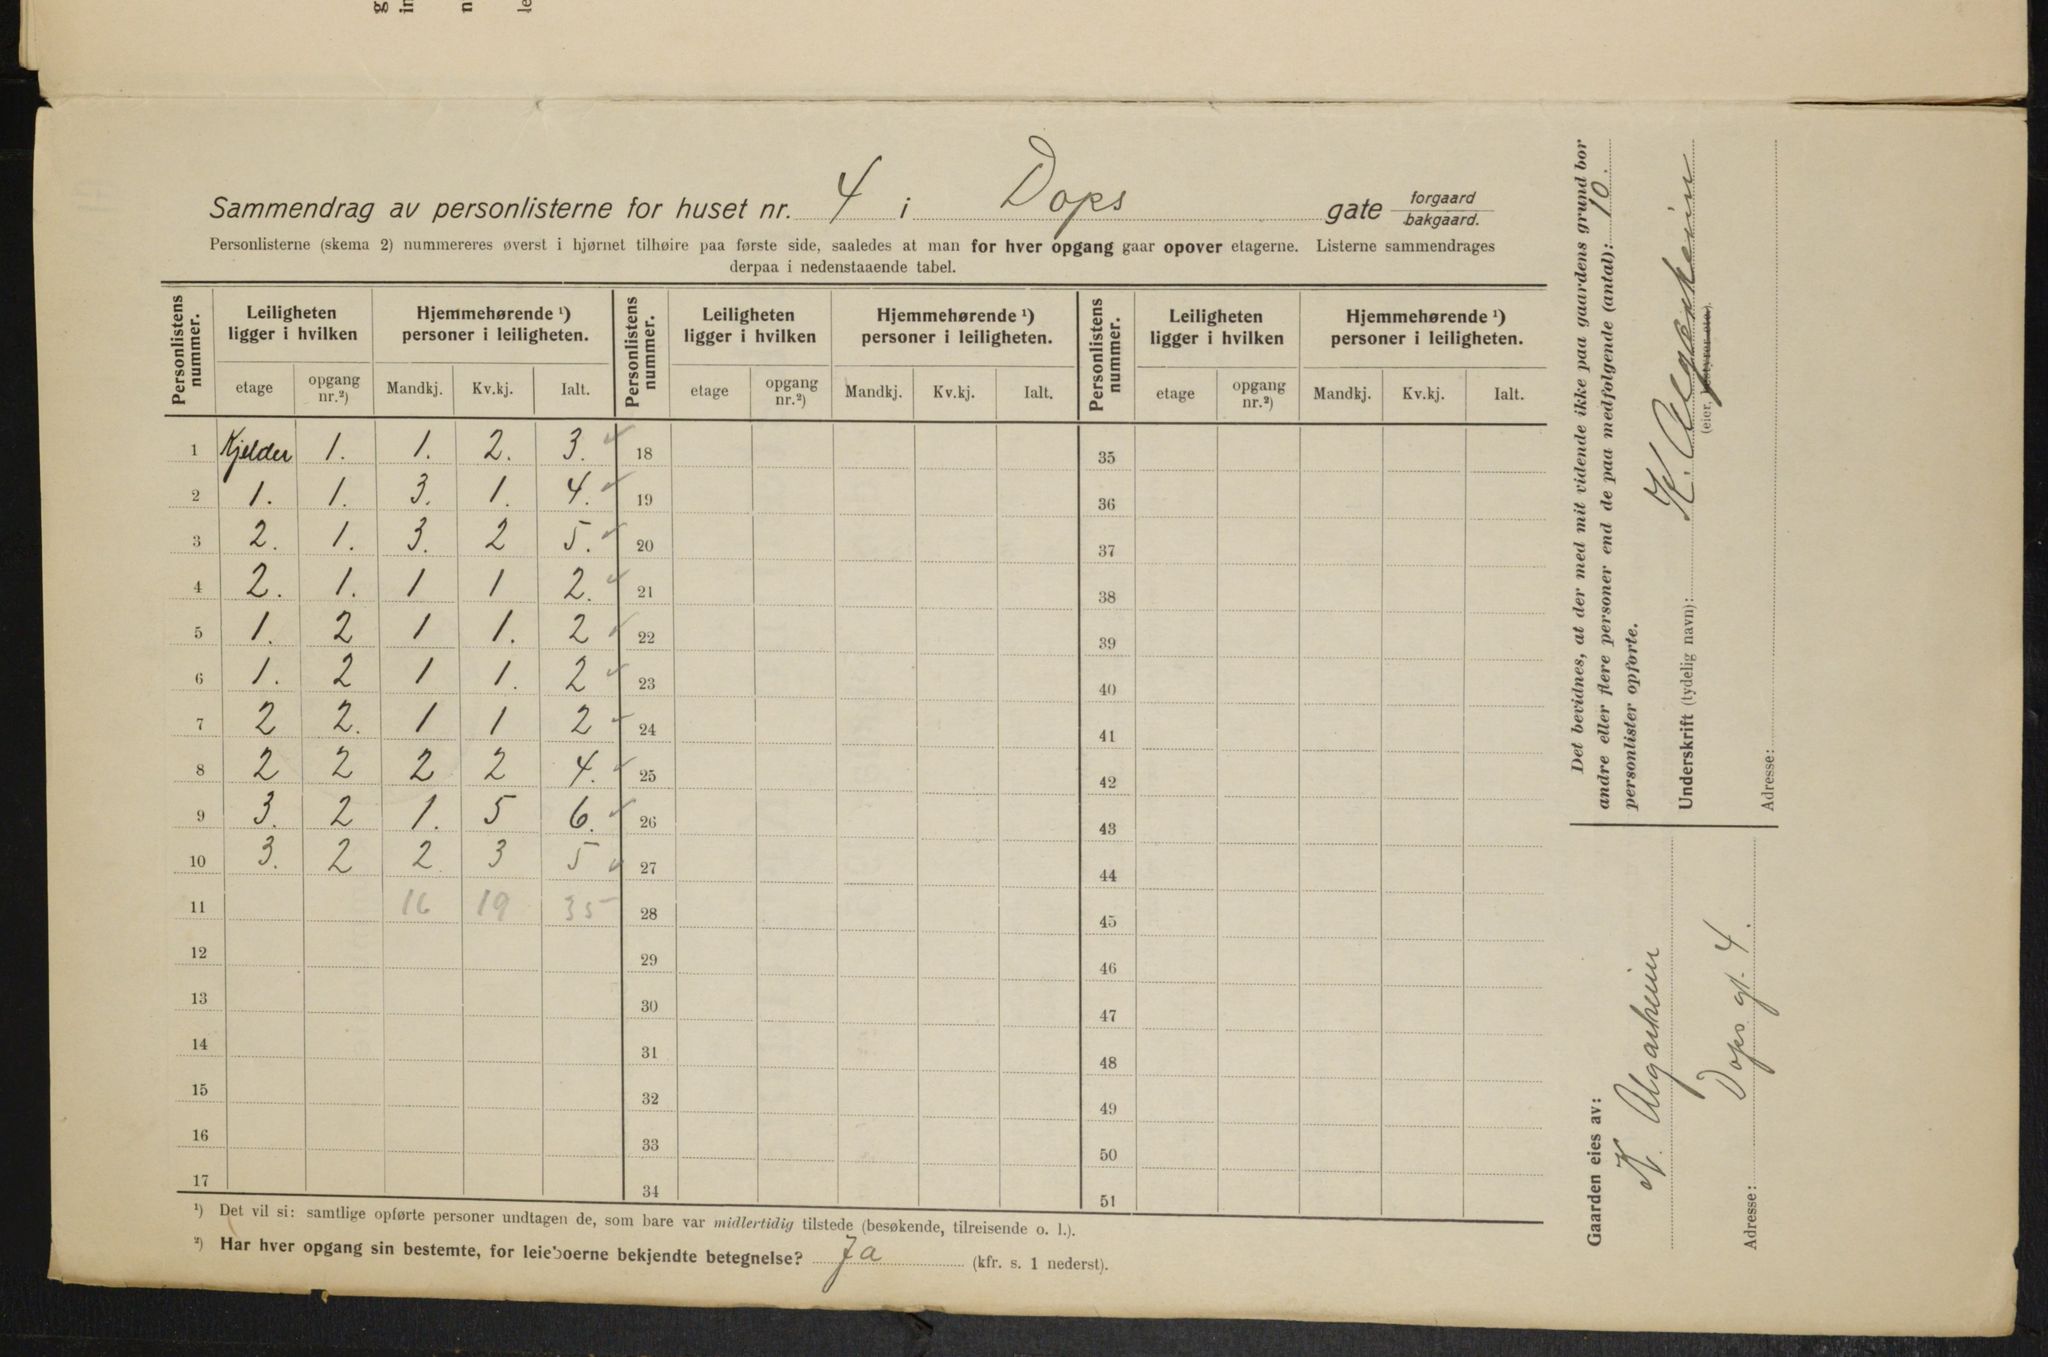 Sammendrag av personlisterne for huset nr. 4 i Dops gate forgaard bakgaard.
Personlisterne (skema 2) nummereres øverst i hjørnet tilhøire paa første side, saaledes at man for hver opgang gaar opover etagerne. Listerne sammendrages
derpaa i nedenstaaende tabel.
Personlistens nummer. Leiligheten ligger i hvilken Hjemmehørende ¹) personer i leiligheten. Personlistens nummer. Leiligheten ligger i hvilken Hjemmehørende ¹) personer i leiligheten. Personlistens nummer. Leiligheten ligger i hvilken Hjemmehørende ¹) personer i leiligheten.
etage opgang nr.²) Mandkj. Kv.kj. Ialt. etage opgang nr.²) Mandkj. Kv.kj. Ialt. etage opgang nr.²) Mandkj. Kv.kj. Ialt.
1 Kjelder 1. 1. 2. 3. 18 35
2 1. 1. 3. 1. 4. 19 36
3 2. 1. 3. 2 5. 20 37
4 2. 1. 1 1 2. 21 38
5 1. 2 1 1. 2 22 39
6 1. 2 1 1. 2 23 40
7 2 2. 1 1 2 24 41
8 2 2 2 2 4. 25 42
9 3. 2 1. 5 6. 26 43
10 3. 2 2 3 5 27 44
11 16 19 35 28 45
12 29 46
13 30 47
14 31 48
15 32 49
16 33 50
17 34 51
¹) Det vil si: samtlige opførte personer undtagen de, som bare var midlertidig tilstede (besøkende, tilreisende o. l.).
²) Har hver opgang sin bestemte, for leieboerne bekjendte betegnelse? Ja (kfr. s. 1 nederst).
Det bevidnes, at der med mit vidende ikke paa gaardens grund bor
andre eller flere personer end de paa medfølgende (antal): 10.
personlister opførte.
Underskrift (tydelig navn): K. Algarheim
(eier, bestyrer eie.).
Adresse:
Gaarden eies av:
K. Algarheim
Adresse: Dops gt. 4.